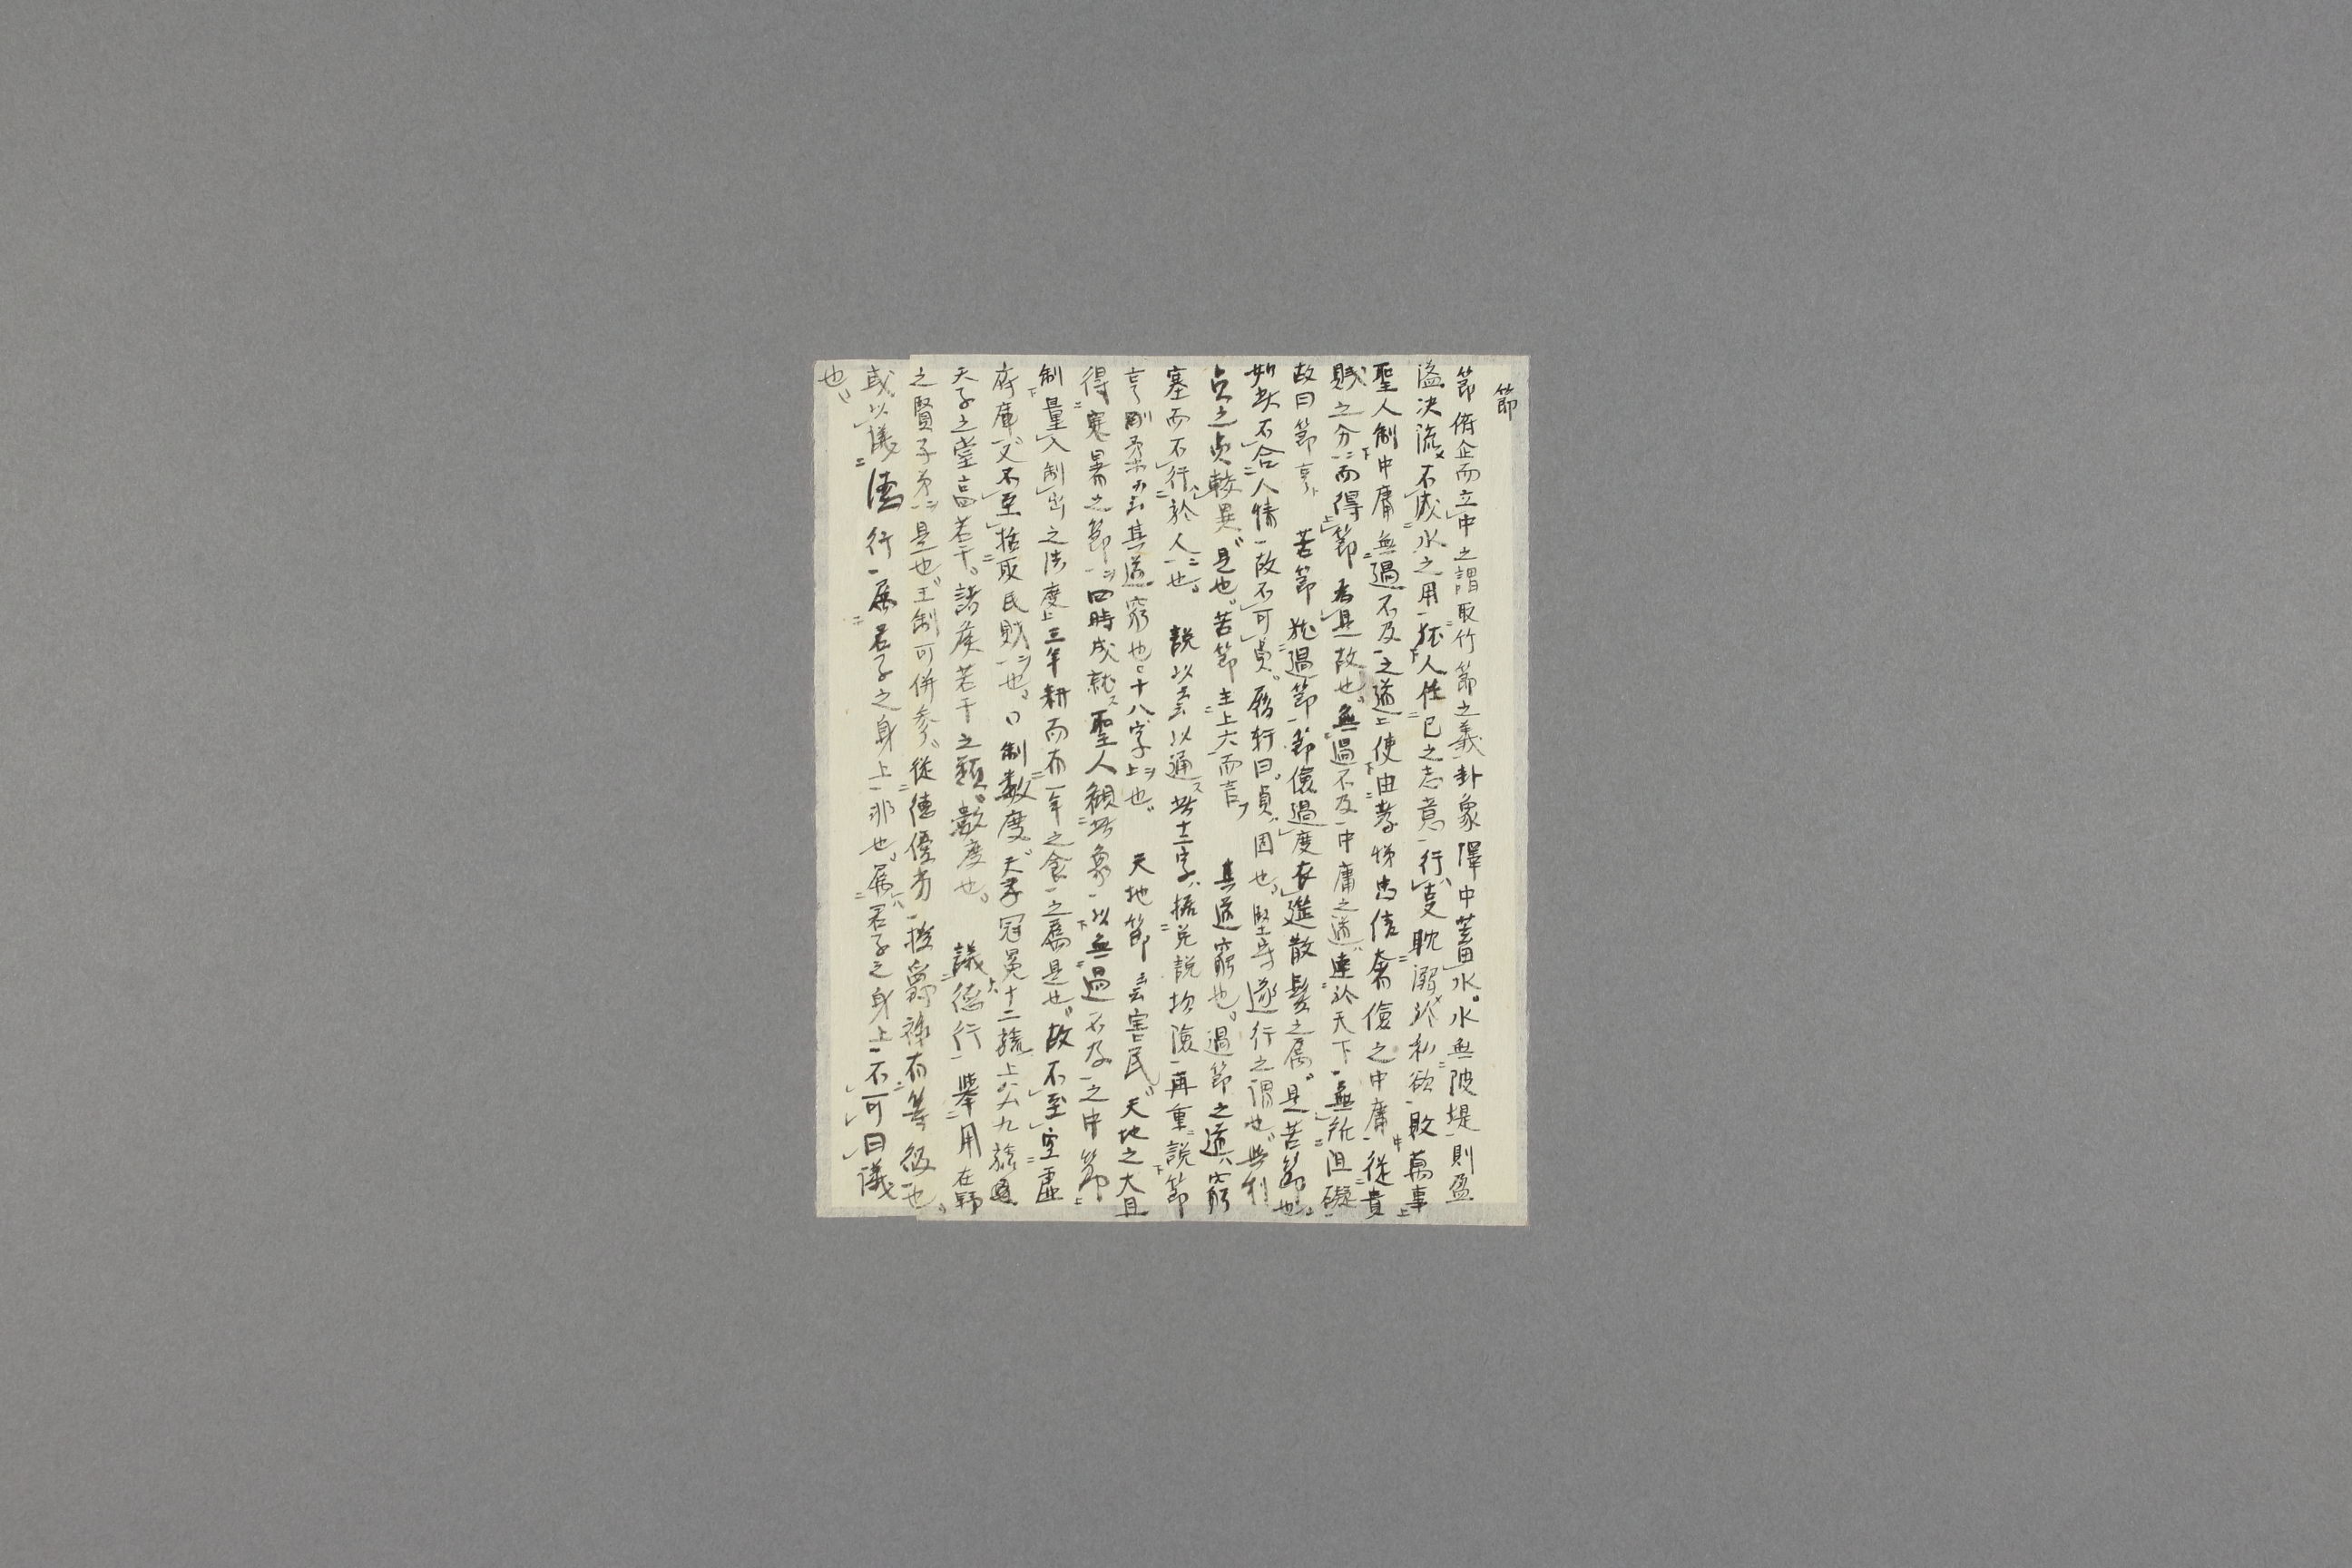 節
節俯企而立中之謂取竹節之義卦象澤中蓄水水無陂堤則盈
溢决流不成水之用猶人任己之志意行事耽溺於私欲敗萬事
聖人制中庸無過不及之道使由孝悌忠信奢儉之中庸從貴
賤之分而得節者是故也無過不及中庸之道達於天下無所阻礙
故曰節亨 苦節 猶過節節儉過度衣進散髮之屬是苦節也
如此不合人情故不可貞 曰貞固也堅守遂行之謂也與利
貞之貞較異是也苦節主上六而言 其道窮也過節之道窮
塞而不行於人也 說以云云以通此十二字據兌說坎險再重說節
亨剛柔云云其道窮也十八字上也 天地節云云害民天地之大且
得寒暑之節四時成就聖人観此象以無過不及之中節
制量入制出之法度三年耕而有一年之食之屬是也故不至空虚
府庫又不至括取民財也 制数度天子冠冕十二旒上公九旒
天子之堂高若干諸侯若干之類数度也 議徳行舉用在野
之賢子弟是也王制可併参從徳優劣授爵祿有等級也
或以議徳行屬君子之身上非也屬君子之身上不可曰議
也